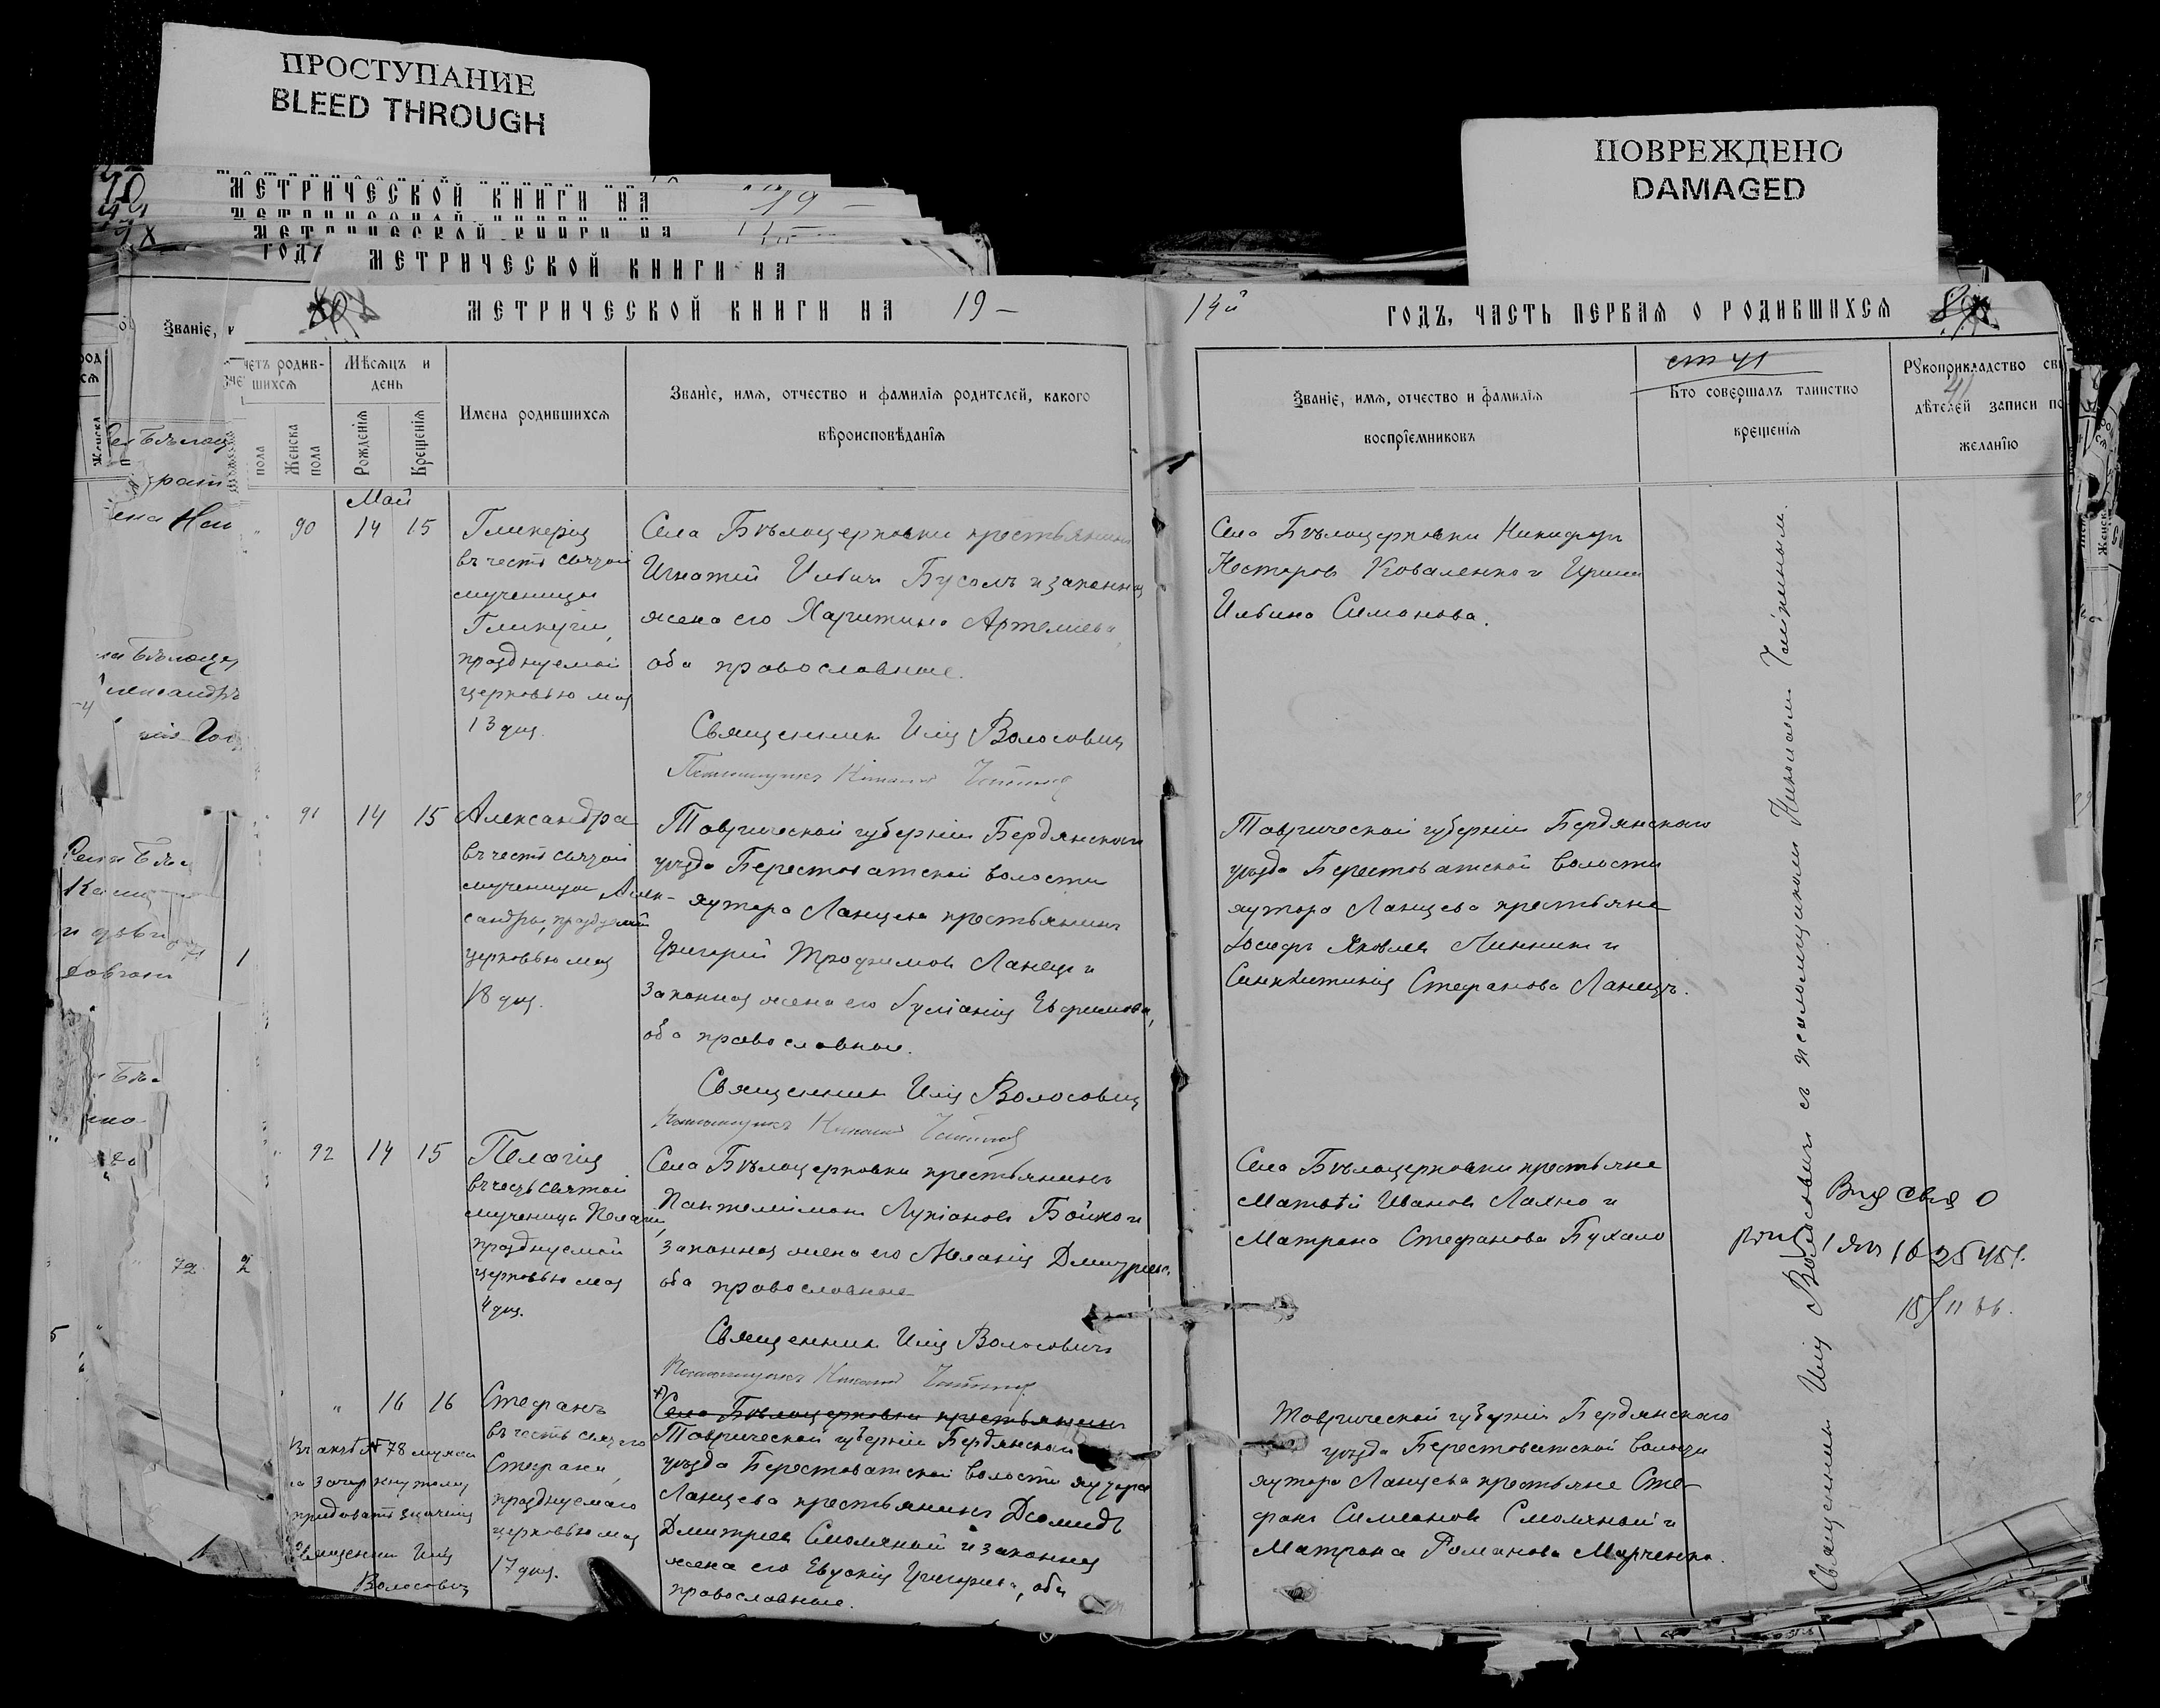 ПРОСТУПАНИЕ
BLEED THROUGH
ПОВРЕЖДЕНО
DAMAGED
МЕТРИЧЕСКОЙ КНИГИ НА 19
МЕТРИЧЕСКОЙ КНИГИ НА
ГОДЪ
МЕТРИЧЕСКОЙ КНИГИ НА
МЕТРИЧЕСКОЙ КНИГИ НА 19 —
14й ГОДЪ, ЧАСТЬ ПЕРВАЯ О РОДИВШИХСЯ
Званіе,
четъ родив-
шихся
пола
Женска
пола
Мѣсяцъ и
день
Рожденія
Крещенія
Имена родившихся
Званіе, имя, отчество и фамилія родителей, какого
вѣроисповѣданія
Званіе, имя, отчество и фамилія
воспріемниковъ
ст 41
Кто совершалъ таинство
крещенія
Рукоприкладство сви
дѣтелей записи по
желанію
Май
90 14 15
Гликерія
въ честь святой
мученицы
Гликеріи,
празднуемой
церковью мая
13 дня.
Села Бѣлоцерковки крестьянинъ
Игнатій Ильинъ Бусолъ и законная
жена его Харитина Артеміева,
оба православные.
Священникъ Илія Волосовичъ
Псаломщикъ Николай
Села Бѣлоцерковки Никифоръ
Несторовъ Коваленко и Ирина
Ильина Симонова.
91 14 15
Александра
въ честь святой
мученицы Алек-
сандры, празднуемой
церковью мая
18 дня.
Таврической губерніи Бердянскаго
уѣзда Берестоватской волости
хутора Ланцева крестьянинъ
Григорій Трофимовъ Ланецъ и
законная жена его Іуліанія Евфимова,
оба православные.
Священникъ Илія Волосовичъ
Псаломщикъ Николай
Таврической губерніи Бердянскаго
уѣзда Берестоватской волости
хутора Ланцева крестьяне
Іосифъ Яковлевъ Линникъ и
Синклитикія Стефанова Ланецъ.
92 14 15
Пелагія
въ честь святой
мученицы Пелагіи,
празднуемой
церковью мая
4 дня.
Села Бѣлоцерковки крестьянинъ
Пантелеймонъ Лукіановъ Бойко и
законная жена его Меланія Дмитріева,
оба православные
Священникъ Илія Волосовичъ
Псаломщикъ Николай
Села Бѣлоцерковки крестьяне
Матвѣй Ивановъ Лахно и
Матрона Стефанова Бухало
" 16 16
Стефанъ
въ честь святого
Стефана,
празднуемаго
церковью мая
17 дня.
Въ актѣ № 78 мужск.
за зачеркнутому
придавать значенія
Священникъ Илія
Волосовичъ
Села Бѣлоцерковки крестьянинъ
Таврической губерніи Бердянскаго
уѣзда Берестоватской волости хутора
Ланцева крестьянинъ Діомидъ
Дмитріевъ Смоляной и законная
жена его Евдокія Григорьева, оба
православные.
Таврической губерніи Бердянскаго
уѣзда Берестоватской волости
хутора Ланцева крестьяне Сте-
фанъ Симеоновъ Смоляной и
Матрона Романова Марченко.
Священникъ Илія Волосовичъ съ псаломщикомъ Николаемъ